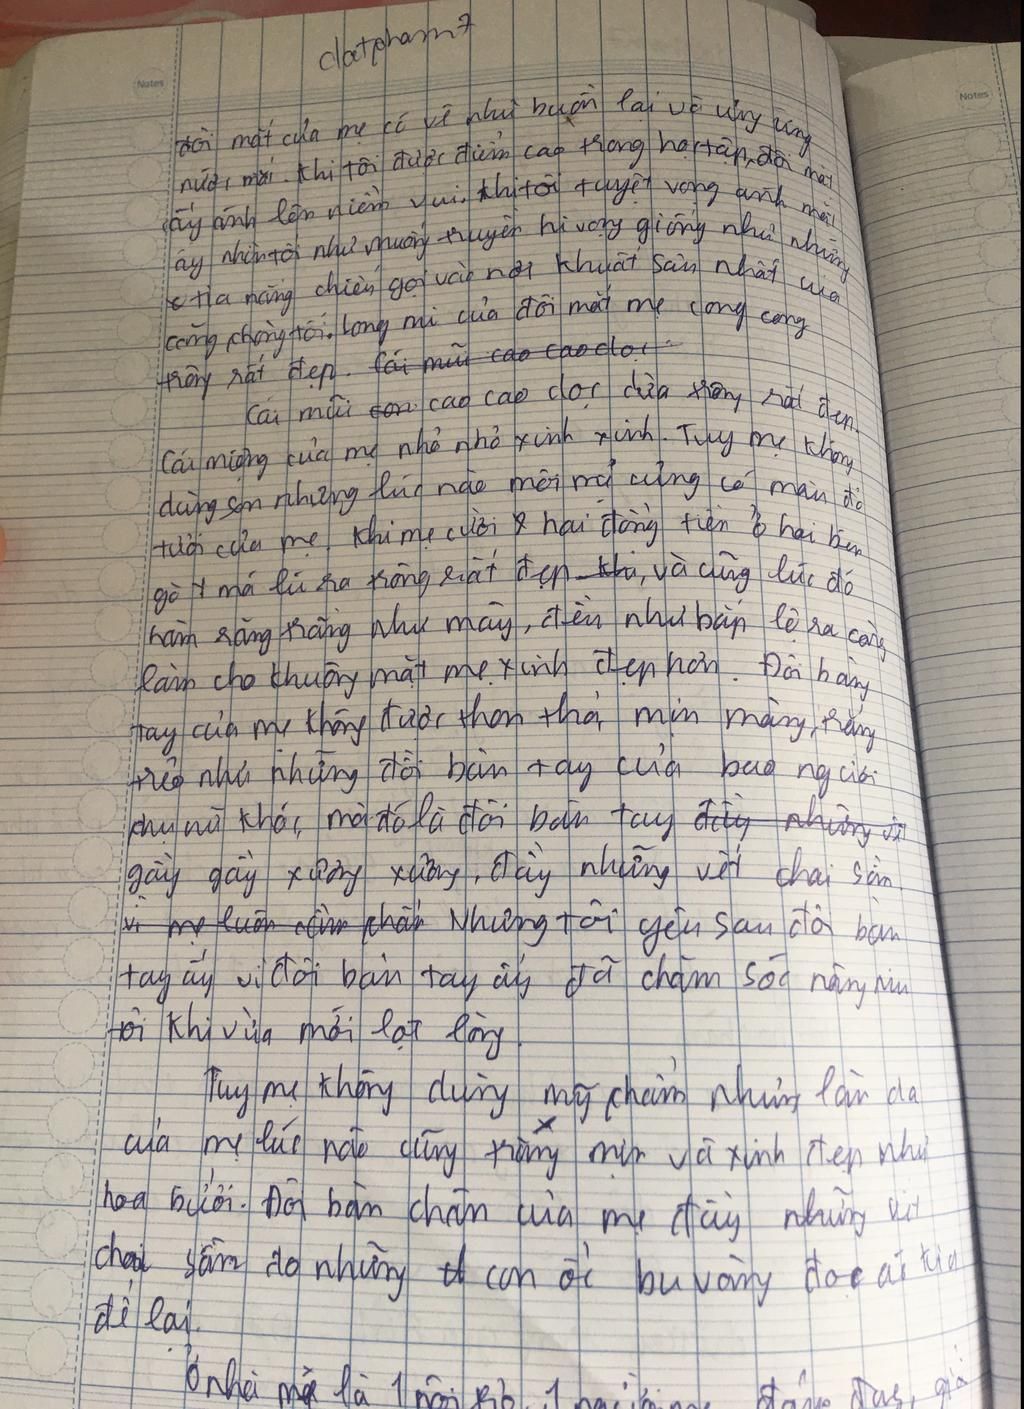 datpham7
Notes
Notes
đôi mắt của mẹ có vẻ như buồn lại và ưng ửng
nước mắt. Khi tôi được điểm cao trong học tập, đôi mắt
ấy ánh lên niềm vui. Khi tôi tuyệt vọng ánh mắt
ấy nhìn tôi như muốn truyền hi vọng giống như những
tia nắng chiếu gọi vào nơi khuất sân nhất của
căng phòng tối. Long mi của đôi mắt mẹ cong cong
trông rất đẹp. Cái mũi cao cao dọc
Cái mũi con cao cao dọc dừa trông rất đẹp.
Cái miệng của mẹ nhỏ nhỏ xinh xinh. Tuy mẹ không
dùng sơn nhưng lúc nào môi mẹ cũng có màu đỏ
tươi của mẹ. Khi mẹ cười hai đồng tiền ở hai bên
gò má lú ra trông rất đẹp, và cũng lúc đó
hàm răng trắng như mây, đền như bắp lộ ra càng
làm cho khuông mặt mẹ xinh đẹp hơn. Đôi bàn
tay của mẹ không được thon thả, mịn màng, trắng
trẻo như những đôi bàn tay của bao người
phụ nữ khác, mà đó là đôi bàn tay đầy những vết
gầy gầy xương xương, đầy những vết chai sần.
vì mẹ luôn Nhưng tôi yêu sau đôi bàn
tay ấy vì đôi bàn tay ấy đã chăm sóc nâng niu
tôi khi vừa mới lọt lòng.
Tuy mẹ không dùng mỹ phẩm nhưng làn da
của mẹ lúc nào cũng trắng mịn và xinh đẹp như
hoa bưởi. Đôi bàn chân của mẹ đầy những vết
chai sần do những con ốc bu vàng độc ác kia
để lại.
Ở nhà mẹ là 1 nội trợ, 1 đáng,